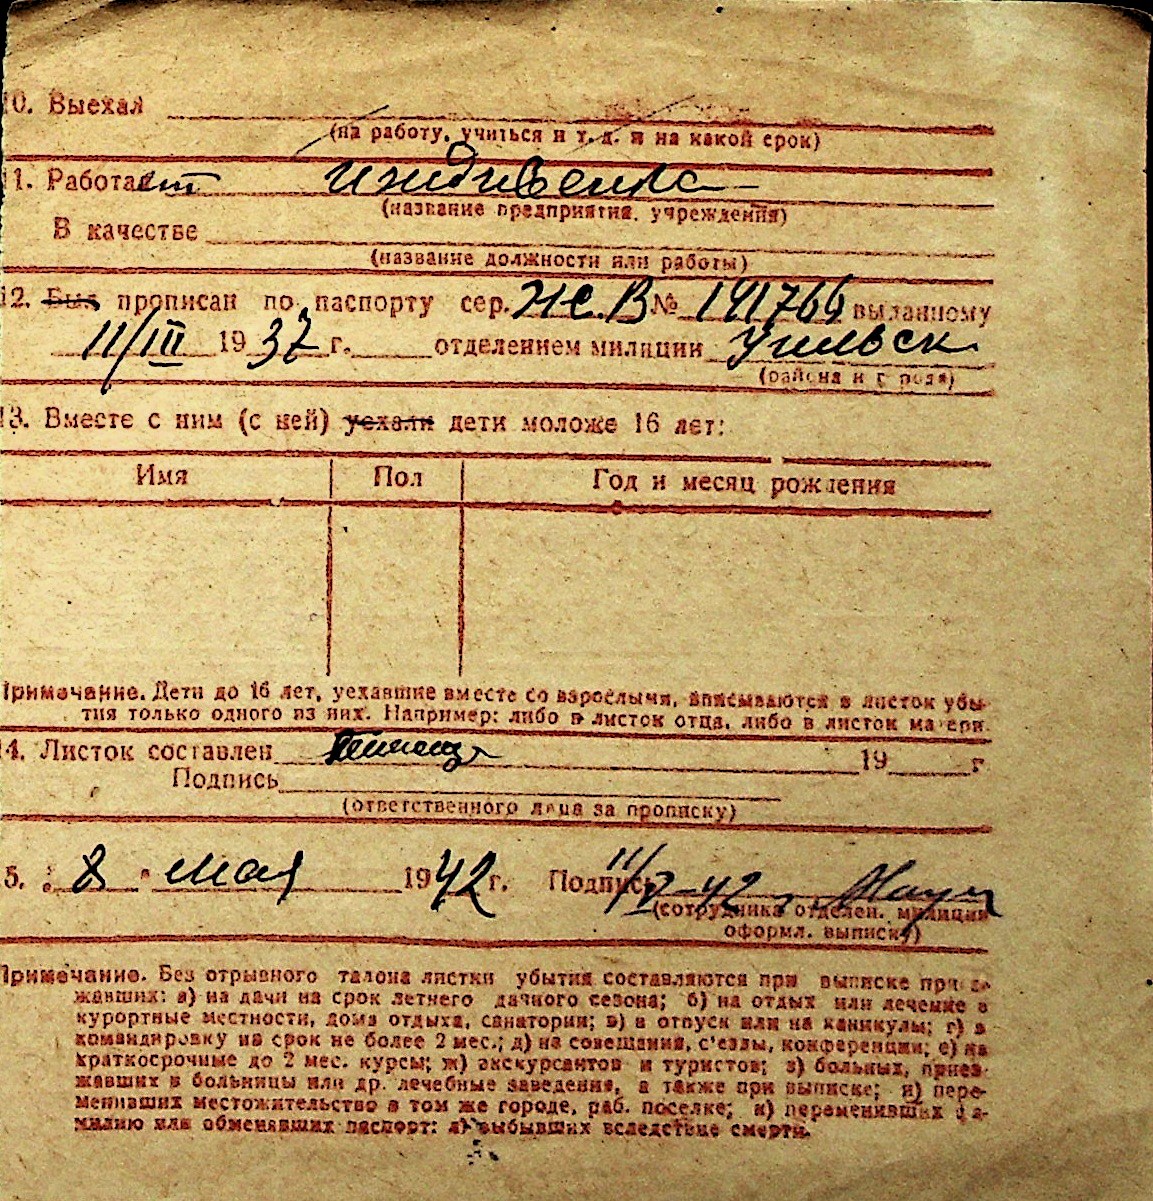 10. Выехал
(на работу, учиться и т. д. и на какой срок)
11. Работает иждивенка
(название предприятия, учреждения)
В качестве
(название должности или работы)
12. Был прописан по паспорту сер. ЖВ № 191766 выданному
11/III 1937 г. отделением милиции
(района и города)
13. Вместе с ним (с ней) уехали дети моложе 16 лет:
Имя Пол Год и месяц рождения
Примечание. Дети до 16 лет, уехавшие вместе со взрослыми, вписываются в листок убы-
тия только одного из них. Например: либо в листок отца, либо в листок матери.
14. Листок составлен 19 г
Подпись
(ответственного лица за прописку)
15. "8" мая 1942 г. Подпись 11/V-42
(сотрудника отделен. милиции
оформл. выписку)
Примечание. Без отрывного талона листки убытия составляются при выписке приез-
жавших: а) на дачи на срок летнего дачного сезона; б) на отдых или лечение в
курортные местности, дома отдыха, санатории; в) в отпуск или на каникулы; г) в
командировку на срок не более 2 мес.; д) на совещания, с'езды, конференции; е) на
краткосрочные до 2 мес. курсы; ж) экскурсантов и туристов; з) больных, приез-
жавших в больницы или др. лечебные заведения, а также при выписке; и) пере-
менивших местожительство в том же городе, раб. поселке; к) переменивших фа-
милию или обменявших паспорт; л) выбывших вследствие смерти.